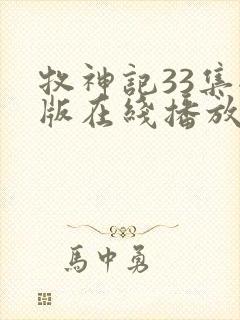 牧神記33集
版在綫播放
馬中勇